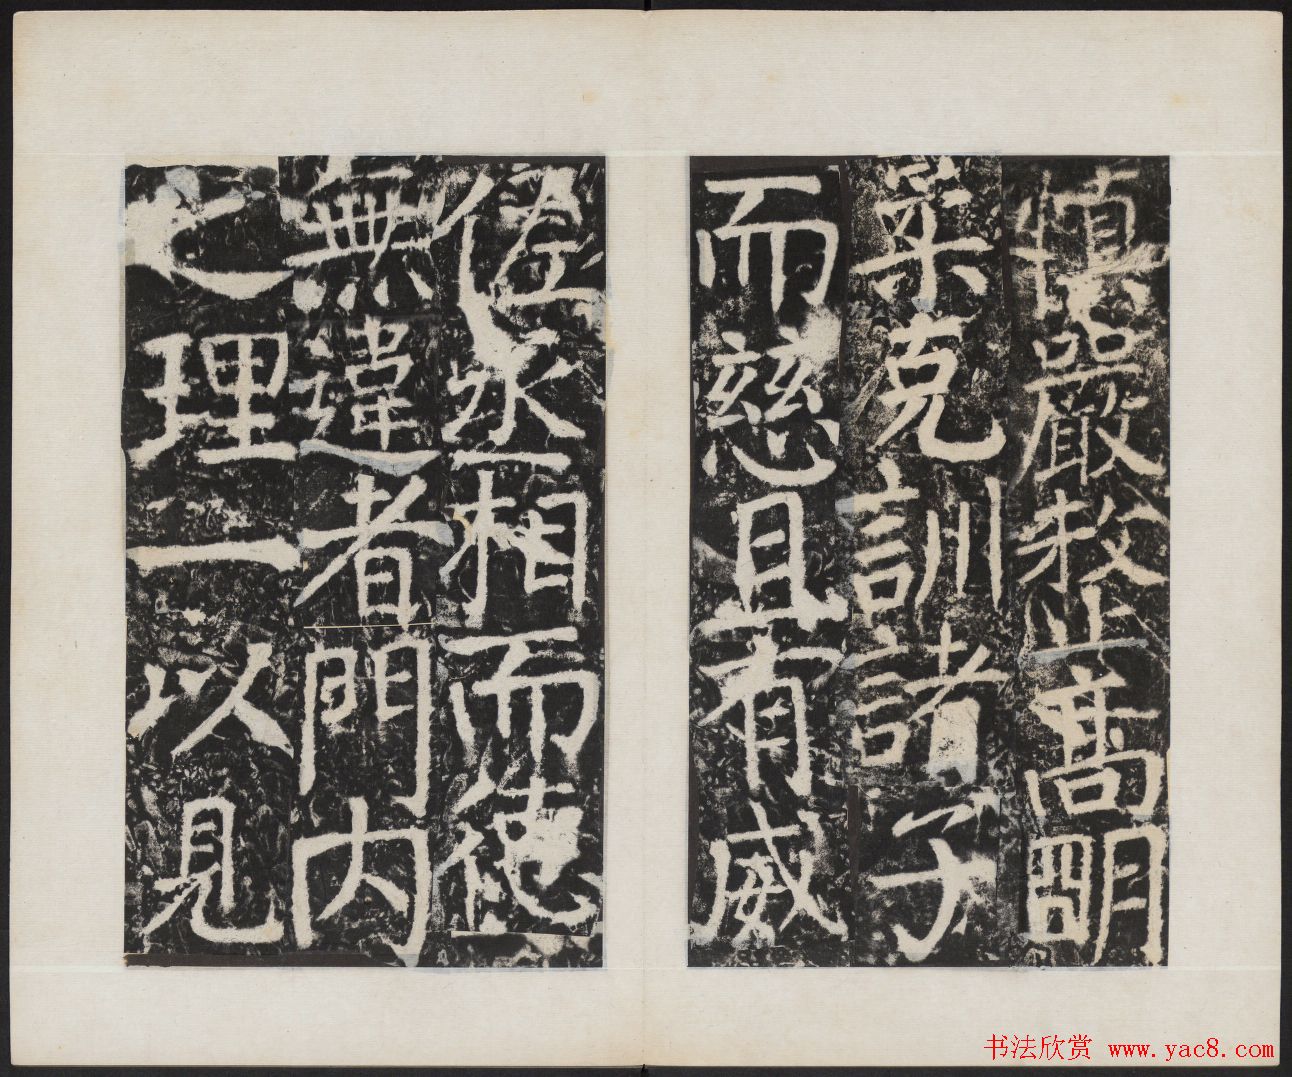 慎嚴牧高明
柔克訓諸子
而慈且有威
佐丞相而德
無違者門内
之理一以見
书法欣赏 www.yac8.com